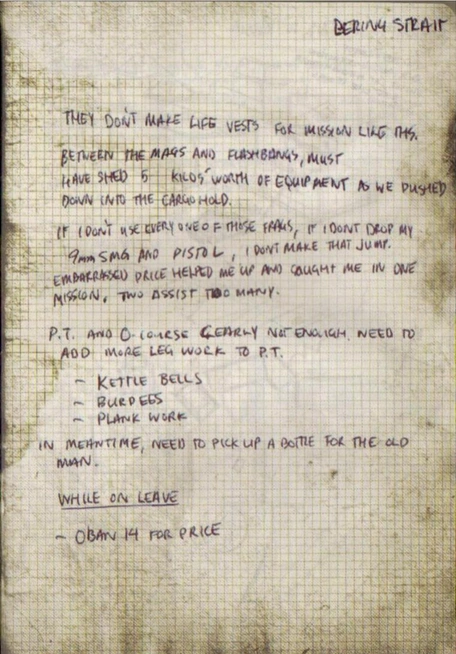 BERING STRAIT
THEY DON'T MAKE LIFE VESTS FOR MISSION LIKE THIS.
BETWEEN THE MAGS AND FLASHBANGS, MUST
HAVE SHED 5 KILOS' WORTH OF EQUIPMENT AS WE PUSHED
DOWN INTO THE CARGO HOLD.
IF I DON'T USE EVERY ONE OF THOSE FRAGS, IF I DON'T DROP MY
9mm SMG AND PISTOL, I DON'T MAKE THAT JUMP.
EMBARRASSED PRICE HELPED ME UP AND CAUGHT ME IN ONE
MISSION. TWO ASSIST TOO MANY.
P.T. AND O-COURSE CLEARLY NOT ENOUGH. NEED TO
ADD MORE LEG WORK TO P.T.
~ KETTLE BELLS
~ BURPEES
~ PLANK WORK
IN MEANTIME, NEED TO PICK UP A BOTTLE FOR THE OLD
MAN.
WHILE ON LEAVE
~ OBAN 14 FOR PRICE